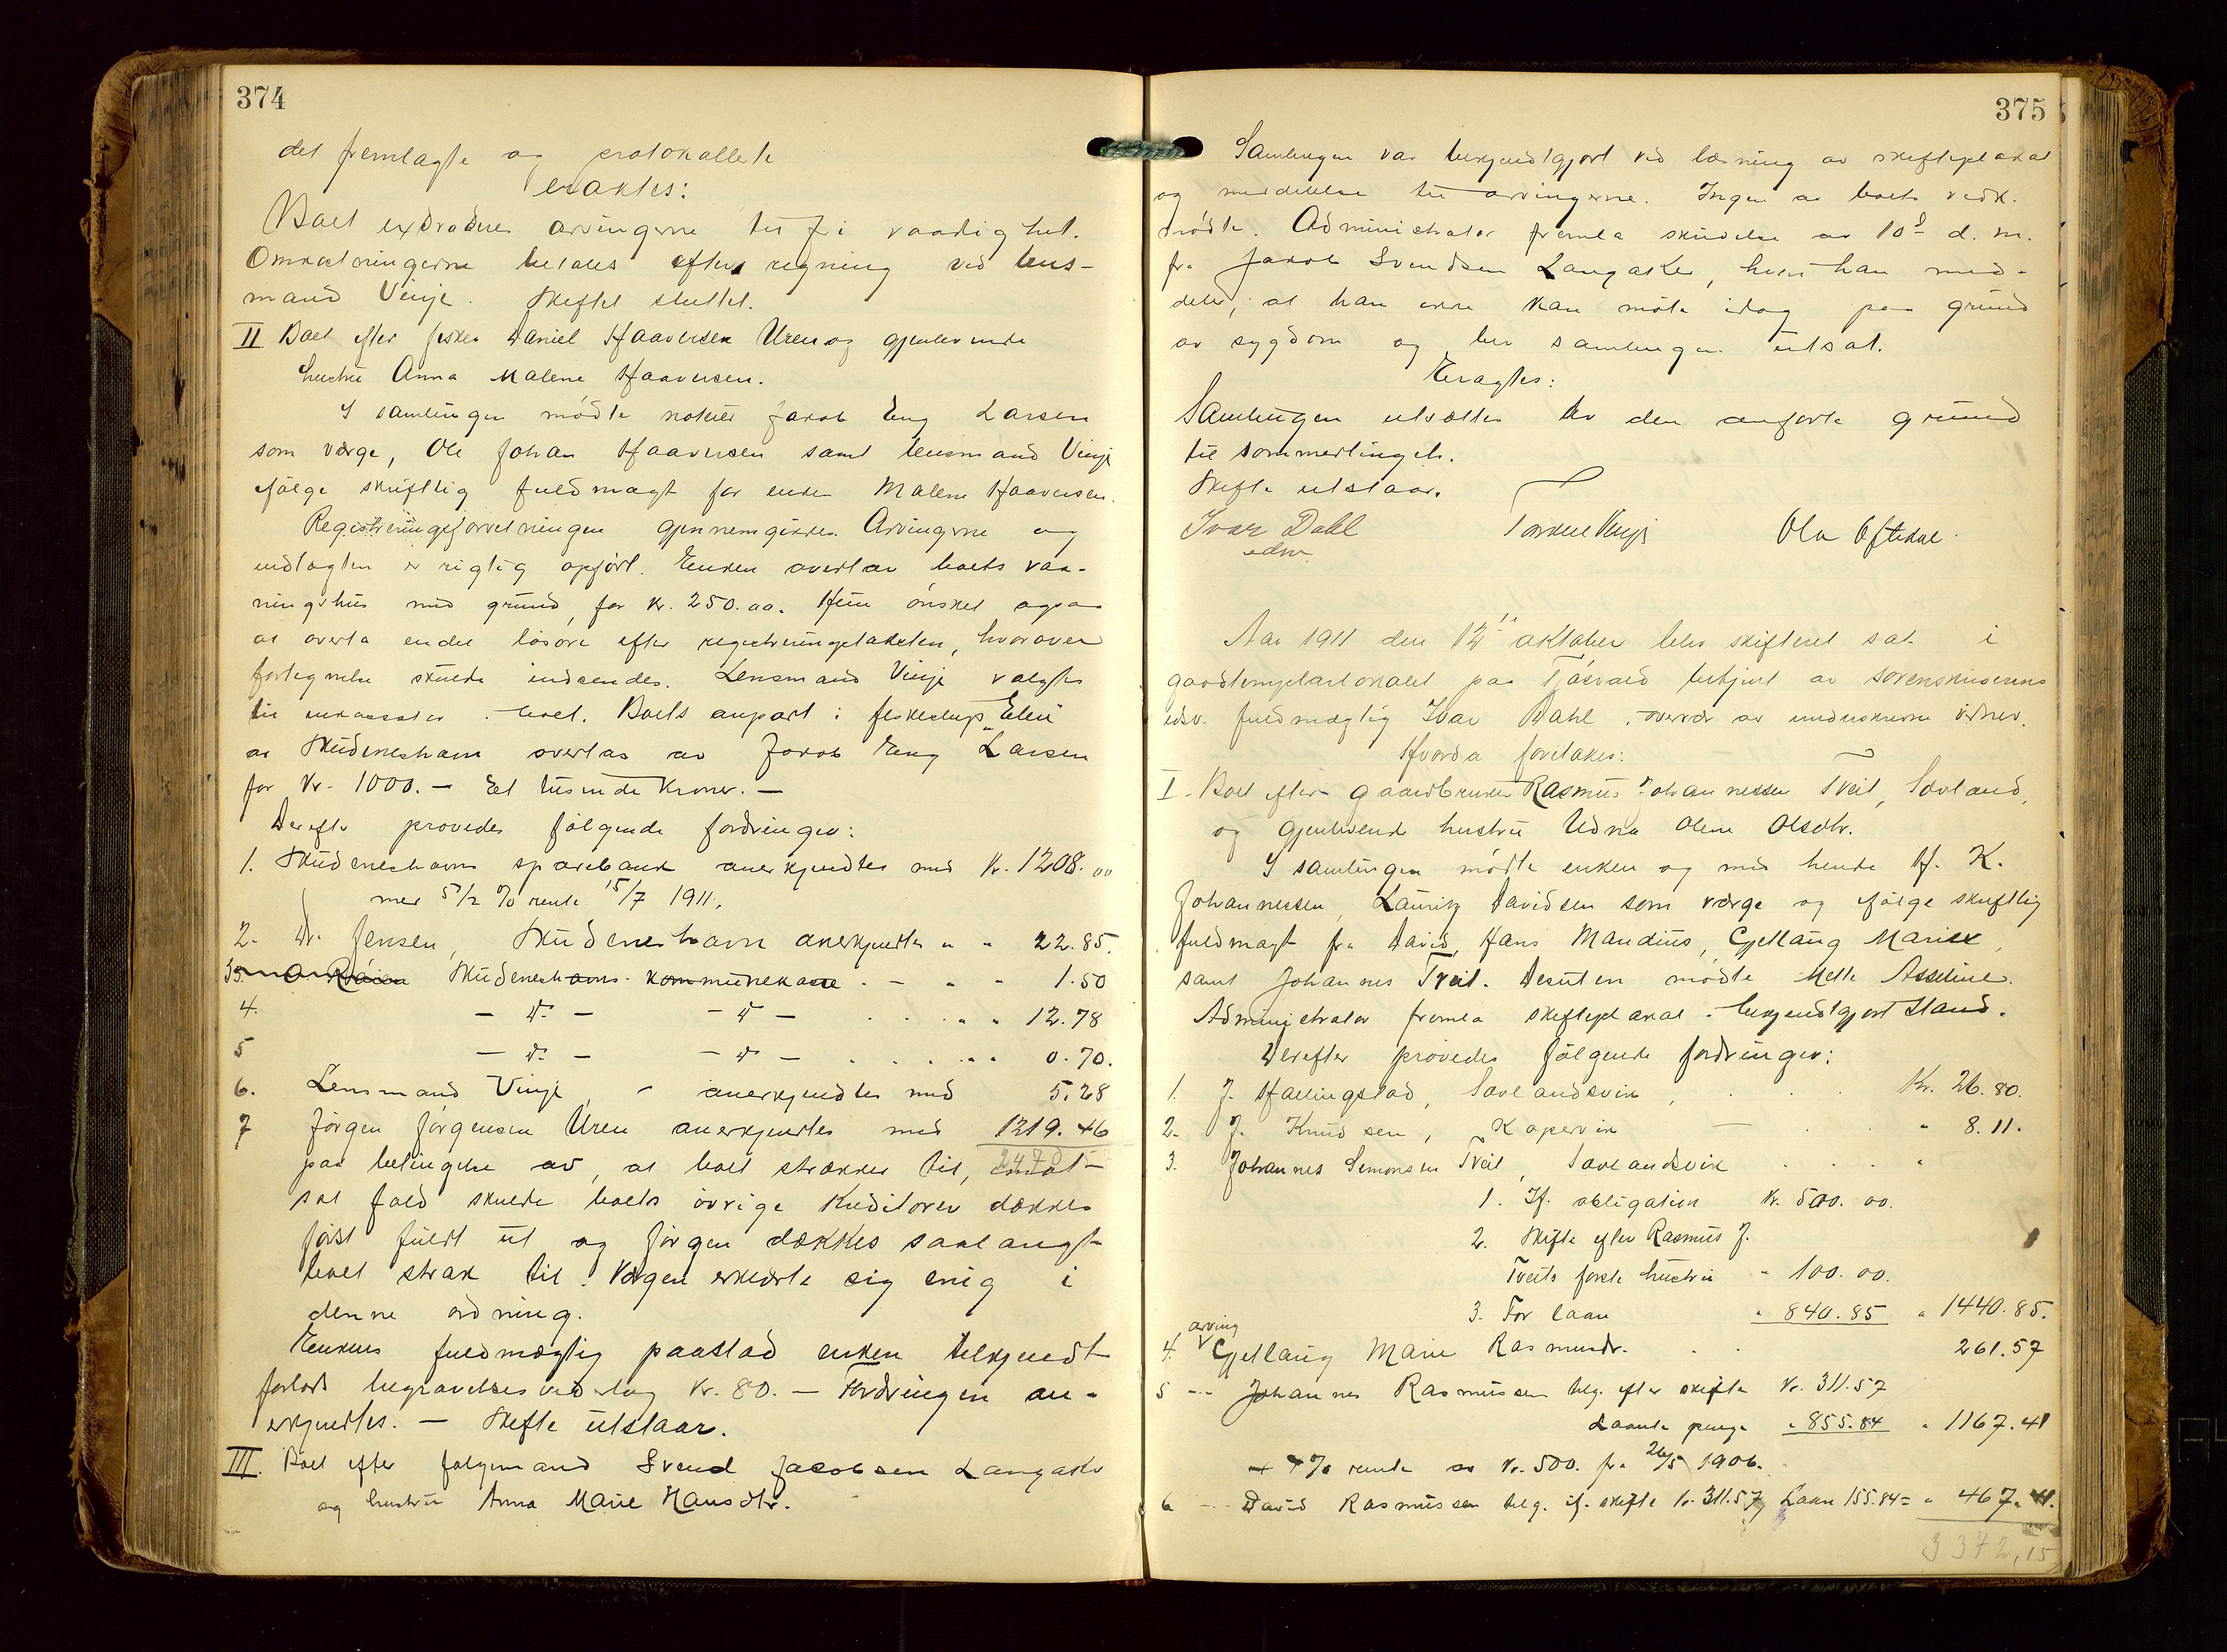 374
det fremlagte og protokollerte
eragtes:
Boet extraderes arvingerne til fri raadighet.
Omkostningerne betales efter regning ved lens-
mand Vinje. Skiftet sluttet.
II. Boet efter fisker Daniel Haaversen Uren og gjenlevende
hustru Anna Malene Haaversen.
I samlingen mødte notkier Jakob Eng Larsen
som værge, Ole Johan Haaversen samt lensmand Vinje
ifølge skriftlig fuldmagt for enken Malene Haaversen.
Registreringsforretningen gjennemgikkes. Arvingerne og
midlagten er rigtig opført. Enken overtar boets vaa-
ningshus med grund for kr. 250.00. Hun ønsket ogsaa
at overta endel løsøre efter registreringstaksten, hvorover
fortegnelse skulde indsendes. Lensmand Vinje valgtes
til inkassator i boet. Boets anpart i fiskeslup "Elen"
av Skudeneshavn overtas av Jakob Eng Larsen
for Kr. 1000.— Et tusinde kroner.—
Derefter prøvedes følgende fordringer:
1. Skudeneshavns sparebank anerkjendtes med Kr. 1208.00
mer 5 1/2 % rente 15/7 1911.
2. Dr. Jensen, Skudeneshavn anerkjendtes " " 22.85.
3. Skudeneshavns kommunekasse . — " " 1.50
4. — D. — — D — . . . " " 12.78
5 — D. — — D — . . . . " " 0.70.
6. Lensmand Vinje, — anerkjendtes med 5.28
7 Jørgen Jørgensen Uren anerkjendtes med 1219.46
paa betingelse av, at boet strækker til, i mot-
sat fald skulde boets øvrige kreditorer dækkes
først fuldt ut og Jørgen dækkes saalangt
boet strak til. Værgen erklærte sig enig i
denne ordning.
Enkens fuldmægtig paastod enken tilkjendt
forlods begravelsesvederlag Kr. 80.— Fordringen an-
erkjendtes. — Skifte utstaar.
III. Boet efter følgemand Svend Jacobsen Langaker
og hustru Anna Marie Hansdtr.
375
Samlingen var bekjendtgjort ved læsning av skifteplakat
og meddelelse til arvingerne. Ingen av boets vedk.
mødte. Administrator fremla skrivelse av 10de d. m.
fra Jakob Svendsen Langaker, hvori han med-
deler, at han ikke kan møte idag paa grund
av sygdom og ber samlingen utsat.
Eragtes:
Samlingen utsættes av den anførte grund
til sommertinget.
Skifte utstaar.
Ivar Dahl Torkel Vinje Ola Oftedal.
edsv
Aar 1911 den 12te oktober blev skifteret sat i
goodtemplarlokalet paa Tjøsvold betjent av sorenskriverens
edsv. fuldmægtig Ivar Dahl i overvær av underskrevne vidner.
Hvorda foretakes:
I. Boet efter gaardbruker Rasmus Johannessen Tveit, Sævland,
og gjenlevende hustru Udna Olene Olsdtr.
I samlingen mødte enken og med hende H. K.
Johannessen, Lauritz Davidsen som værge og ifølge skriftlig
fuldmagt fra David, Hans Mandius, Gjellaug Marie,
samt Johannes Tveit. Desuten mødte Mette Asseline.
Administrator fremla skifteplakat i bekjendtgjort stand.
Derefter prøvedes følgende fordringer:
1. J. Hallingstad, Sævlandsvik, . . . Kr. 26.80.
2. J. Knudsen, Kopervik — . . " 8.11.
3. Johannes Simonsen Tveit, Sævlandsvik . . . . "
1. If. obligation Kr. 500.00.
2. Skifte efter Rasmus J.
Tveits første hustru " 100.00.
3. For laan " 840.85 " 1440.85.
arving
4. Gjellaug Marie Rasmusdr. . . 261.57
5 -- Johannes Rasmussen tilg. efter skifte Kr. 311.57
Laante penge " 855.84 " 1167.41
+ 4 % rente av Kr. 500. fra 26/5 1906.
6 -- David Rasmussen tilg. if. skifte kr. 311.57 Laan 155.84 = " 467.41.
3372,15